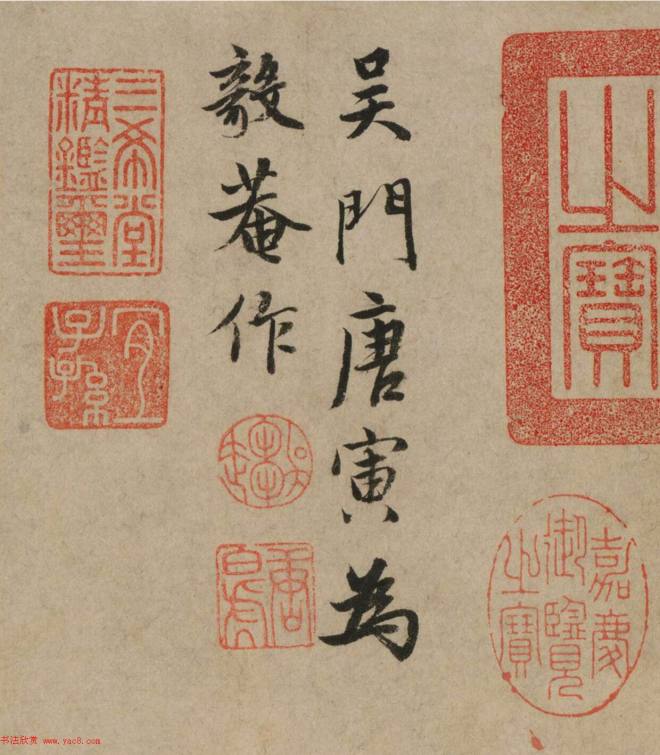 吴門唐寅為
毅菴作
之寶
嘉慶御覽之寶
三希堂精鑑璽
宜子孫
唐白虎
书法欣赏 www.yac8.com